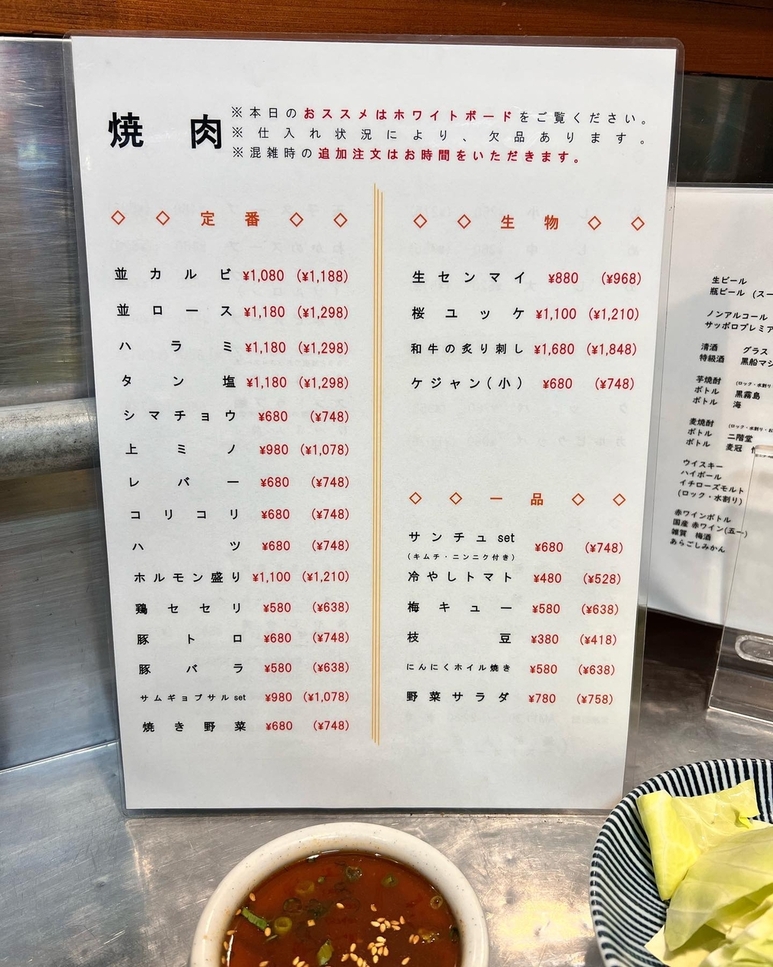 焼肉
※本日のおススメはホワイトボードをご覧ください。
※仕入れ状況により、欠品あります。
※混雑時の追加注文はお時間をいただきます。
◇ ◇ 定番 ◇ ◇
並カルビ ¥1,080 (¥1,188)
並ロース ¥1,180 (¥1,298)
ハラミ ¥1,180 (¥1,298)
タン塩 ¥1,180 (¥1,298)
シマチョウ ¥680 (¥748)
上ミノ ¥980 (¥1,078)
レバー ¥680 (¥748)
コリコリ ¥680 (¥748)
ハツ ¥680 (¥748)
ホルモン盛り ¥1,100 (¥1,210)
鶏セセリ ¥580 (¥638)
豚トロ ¥680 (¥748)
豚バラ ¥580 (¥638)
サムギョプサルset ¥980 (¥1,078)
焼き野菜 ¥680 (¥748)
◇ ◇ 生物 ◇ ◇
生センマイ ¥880 (¥968)
桜ユッケ ¥1,100 (¥1,210)
和牛の炙り刺し ¥1,680 (¥1,848)
ケジャン(小) ¥680 (¥748)
◇ ◇ 一品 ◇ ◇
サンチュset ¥680 (¥748)
(キムチ・ニンニク付き)
冷やしトマト ¥480 (¥528)
梅キュー ¥580 (¥638)
枝豆 ¥380 (¥418)
にんにくホイル焼き ¥580 (¥638)
野菜サラダ ¥780 (¥758)
生ビール
瓶ビール (スー
ノンアルコール
サッポロプレミア
清酒 グラス
特級酒 黒船マシ
芋焼酎 (ロック・水割り
ボトル 黒霧島
ボトル 海
麦焼酎 (ロック・水割り・お
ボトル 二階堂
ボトル 麦冠
ウイスキー
ハイボール
イチローズモルト
(ロック・水割り)
赤ワインボトル
国産 赤ワイン(五一)
雑賀 梅酒
あらごしみかん